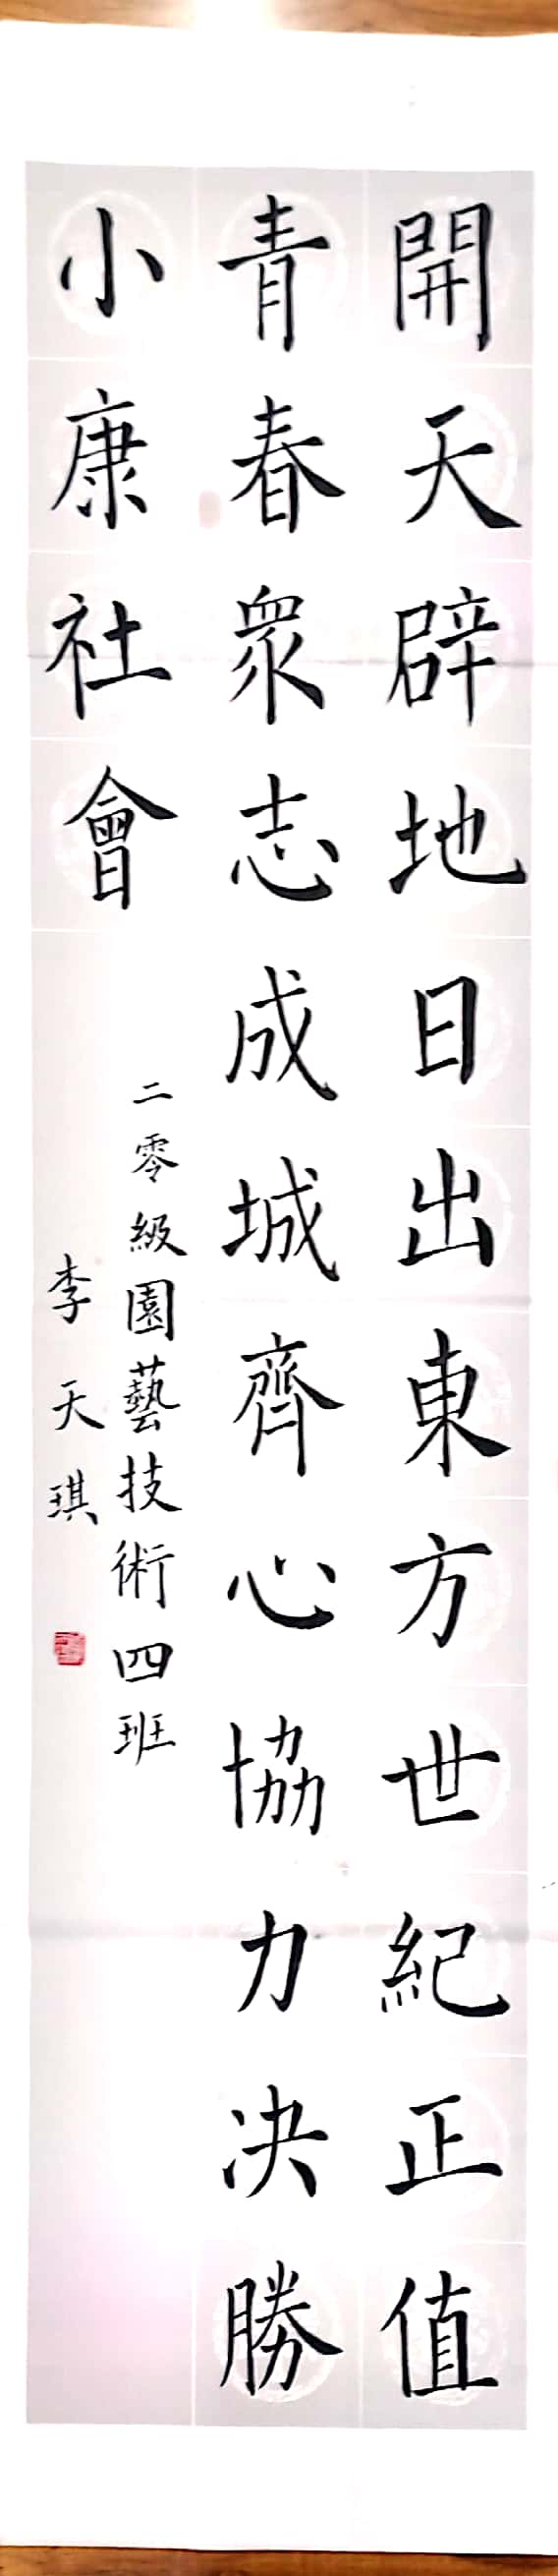 開天辟地日出東方世紀正值
青春衆志成城齊心協力决勝
小康社會
二零級園藝技術四班
李天琪